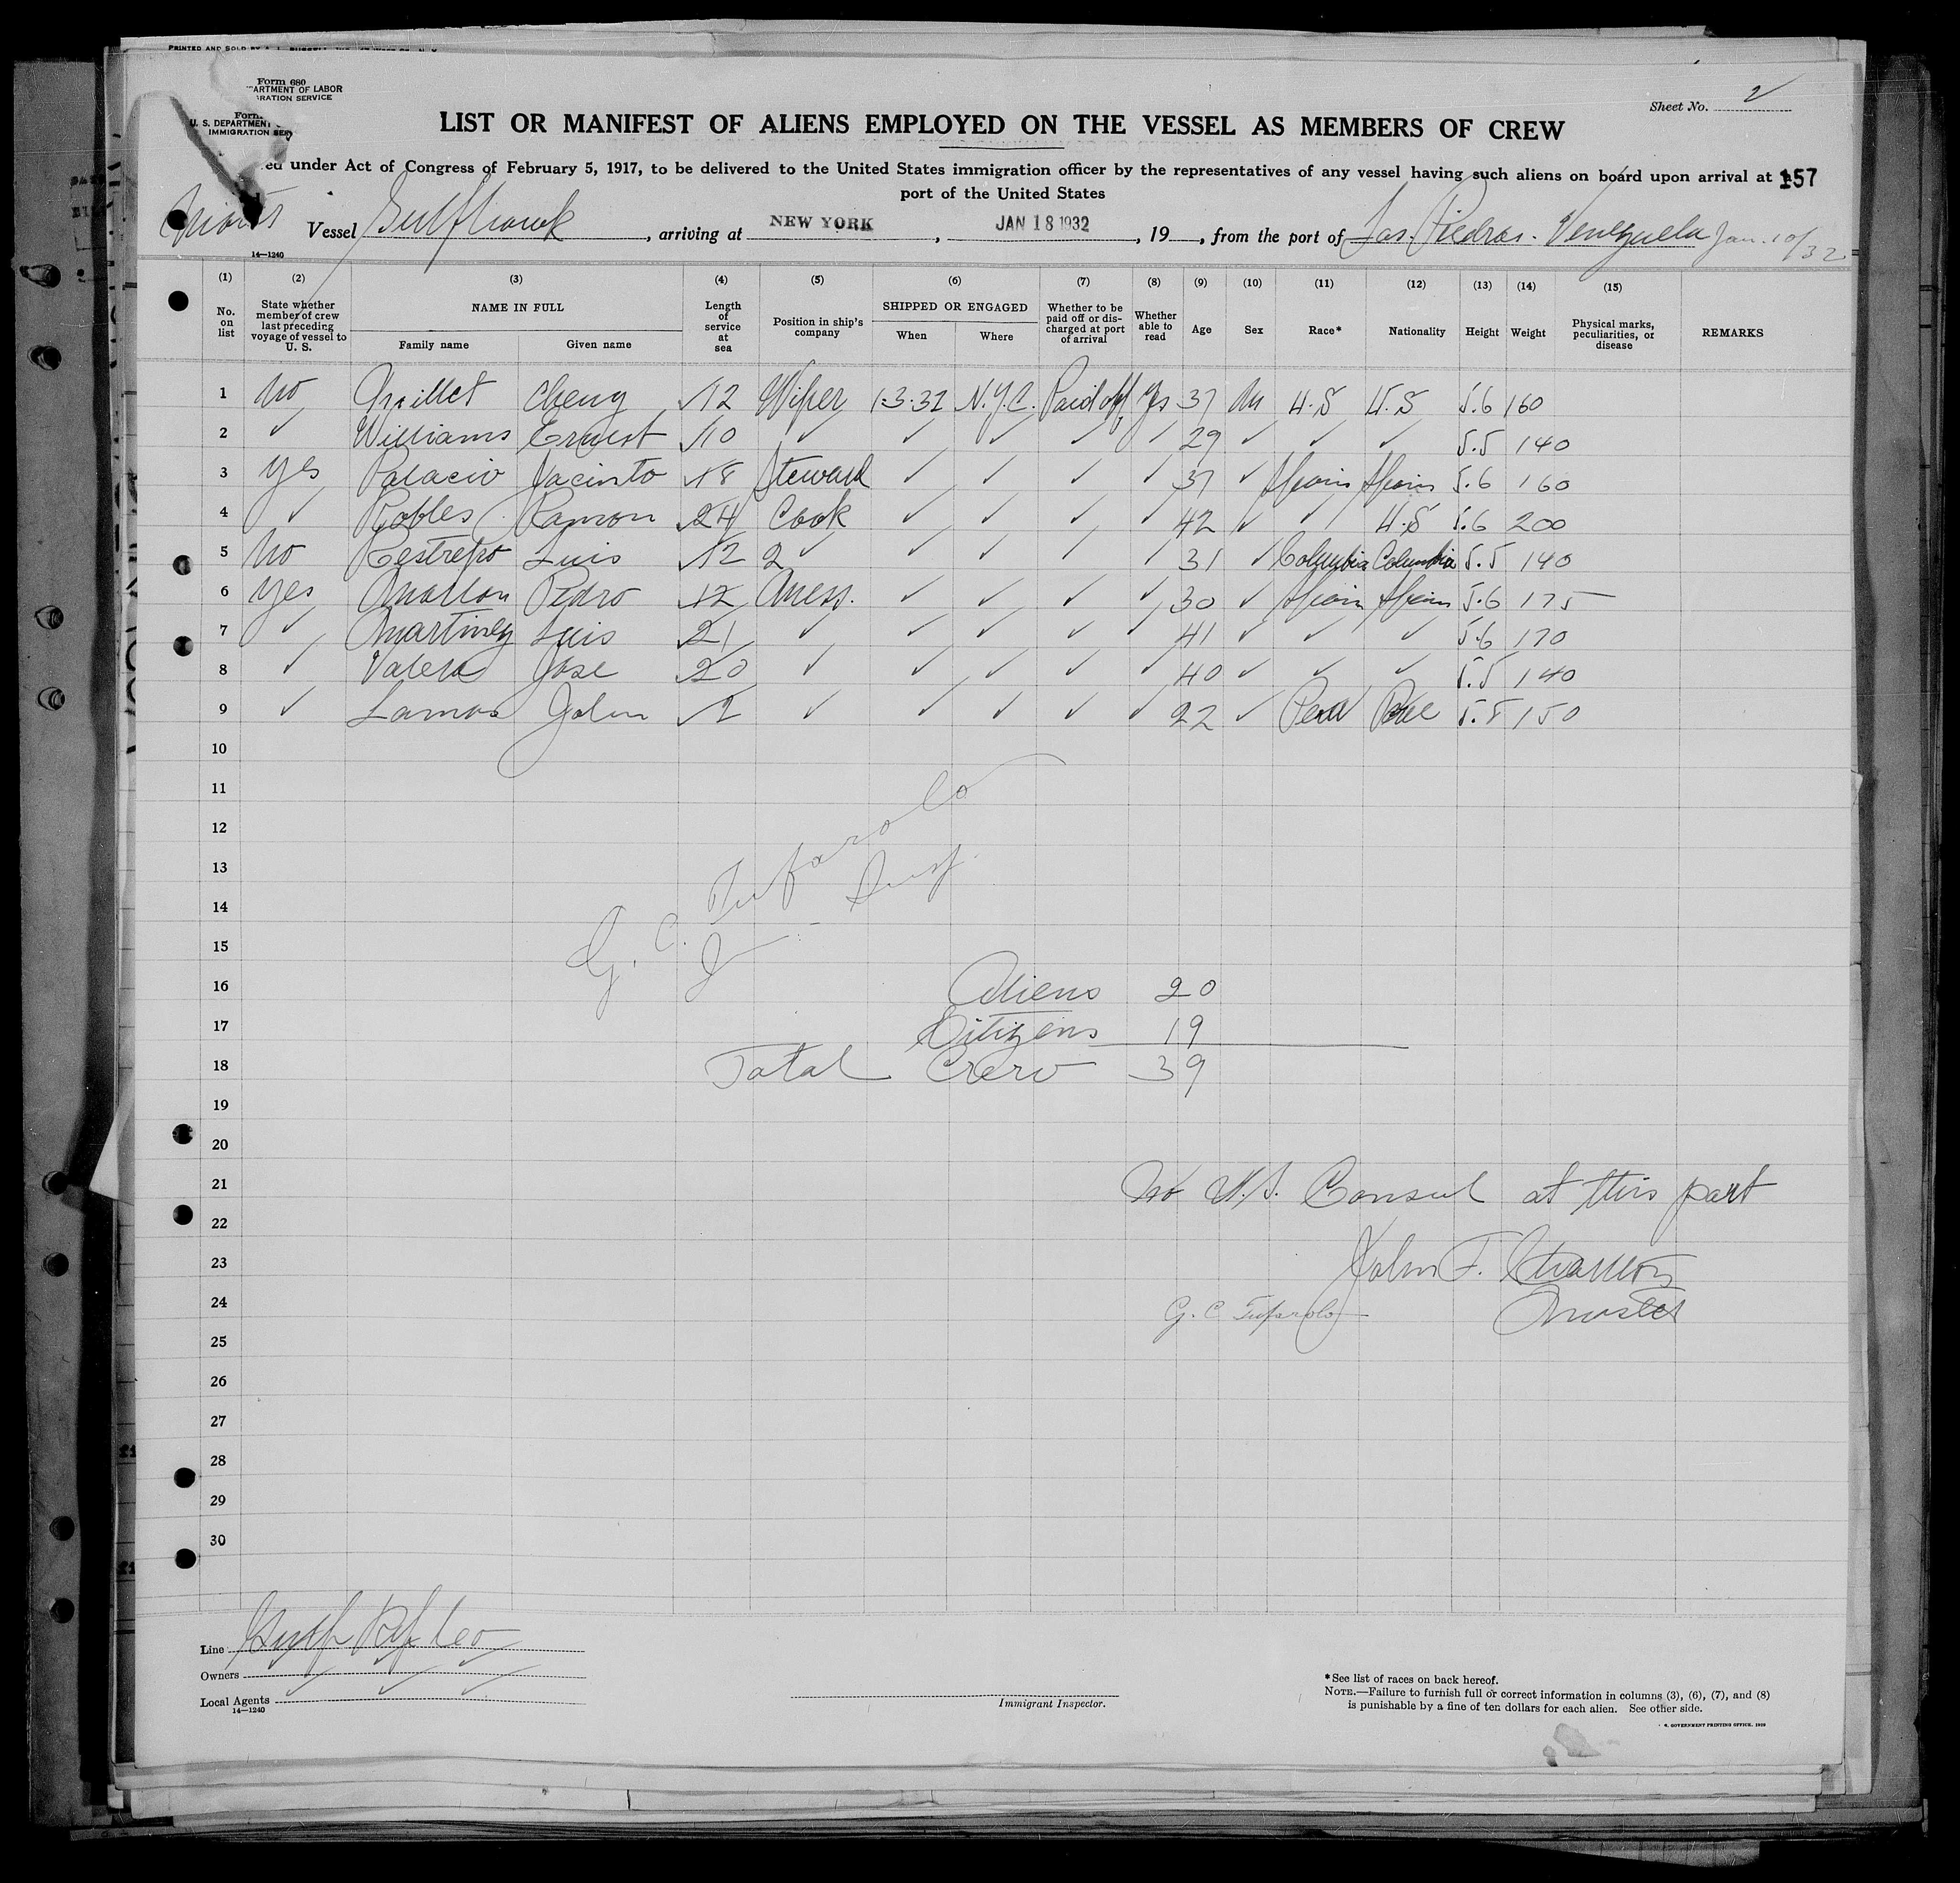 PRINTED AND SOLD BY
Form 680
ARTMENT OF LABOR
IGRATION SERVICE
Form
U. S. DEPARTMENT
IMMIGRATION SER
Sheet No. 2
LIST OR MANIFEST OF ALIENS EMPLOYED ON THE VESSEL AS MEMBERS OF CREW
ed under Act of Congress of February 5, 1917, to be delivered to the United States immigration officer by the representatives of any vessel having such aliens on board upon arrival at 157
port of the United States
Vessel Gulfhawk, arriving at NEW YORK, JAN 18 1932, 19, from the port of Las Piedras. Venezuela Jan. 10/32
14—1240
(1) (2) (3) (4) (5) (6) (7) (8) (9) (10) (11) (12) (13) (14) (15)
No. on list State whether member of crew last preceding voyage of vessel to U. S. NAME IN FULL Family name Given name Length of service at sea Position in ship's company SHIPPED OR ENGAGED When Where Whether to be paid off or discharged at port of arrival Whether able to read Age Sex Race* Nationality Height Weight Physical marks, peculiarities, or disease REMARKS
1 No Cheny 12 Wiper 1.3.32 N.Y.C. Paid off Yes 37 M U.S U.S 5.6 160
2 ✓ Williams Ernest 10 ✓ ✓ ✓ ✓ ✓ 29 ✓ ✓ ✓ 5.5 140
3 Yes Palacio Jacinto 18 Steward ✓ ✓ ✓ ✓ 37 ✓ Spain Spain 5.6 160
4 ✓ Robles Ramon 24 Cook ✓ ✓ ✓ ✓ 42 ✓ ✓ U.S 5.6 200
5 No Restrepo Luis 12 2 ✓ ✓ ✓ ✓ ✓ 31 ✓ Columbia Columbia 5.5 140
6 Yes Pedro 12 Mess. ✓ ✓ ✓ ✓ 30 ✓ Spain Spain 5.6 175
7 ✓ Martinez Luis 21 ✓ ✓ ✓ ✓ ✓ 41 ✓ ✓ ✓ 5.6 170
8 ✓ Valera Jose 20 ✓ ✓ ✓ ✓ ✓ 40 ✓ ✓ ✓ 5.5 140
9 ✓ Lamas John 2 ✓ ✓ ✓ ✓ ✓ 22 ✓ Peru Peru 5.8 150
10
11
12
13
14
15
G. C. Tufarolo
Insp.
16 Aliens 20
17 Citizens 19
18 Total Crew 39
19
20
21 No U.S. Consul at this port
22
23 John F.
24 G. C Tufarolo Master
25
26
27
28
29
30
Line Gulf Rfg Co
Owners ✓ ✓ ✓
Local Agents ✓ ✓ ✓
14—1240
Immigrant Inspector.
*See list of races on back hereof.
NOTE.—Failure to furnish full or correct information in columns (3), (6), (7), and (8)
is punishable by a fine of ten dollars for each alien. See other side.
GOVERNMENT PRINTING OFFICE